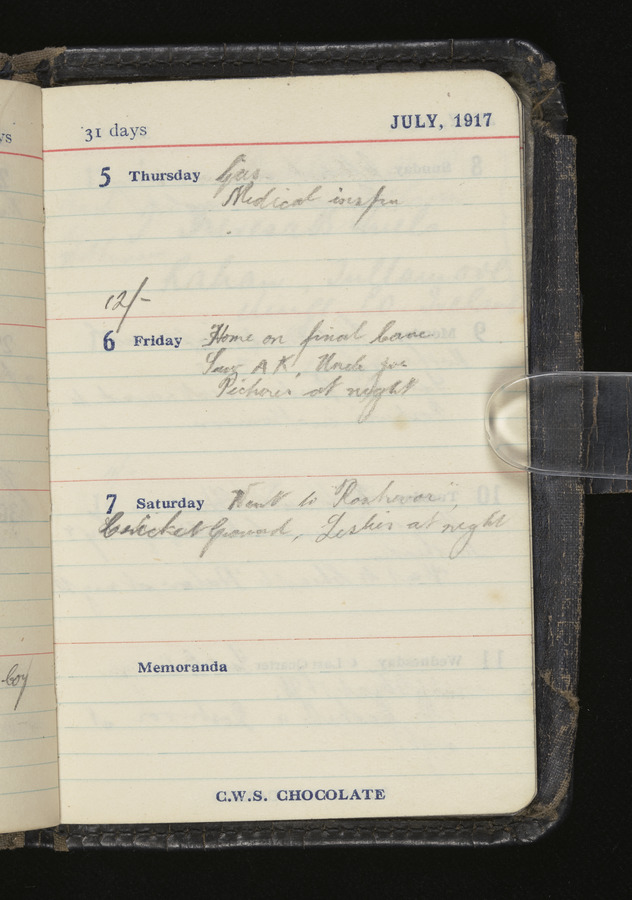 ys
31 days
JULY, 1917
5 Thursday Gas.
Medical inspn
12/-
6 Friday Home on final leave
Saw A K, Uncle Joe
Pictures at night
7 Saturday Went to
Cricket Ground, Leslies at night
Memoranda
boy
C.W.S. CHOCOLATE